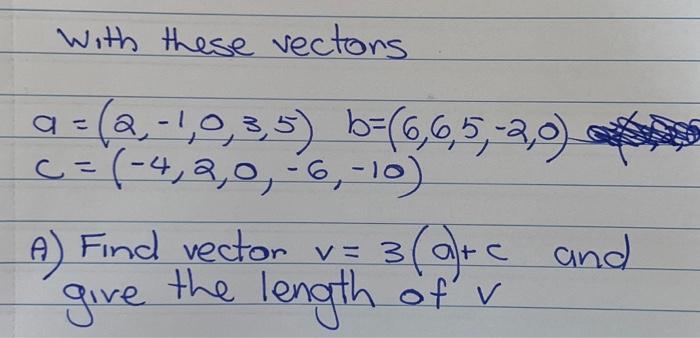 With these vectors
a = (2, -1, 0, 3, 5) b=(6,6,5,-2,0)
c = (-4, 2, 0, -6, -10)
A) Find vector v = 3(a)+c and
give the length of v